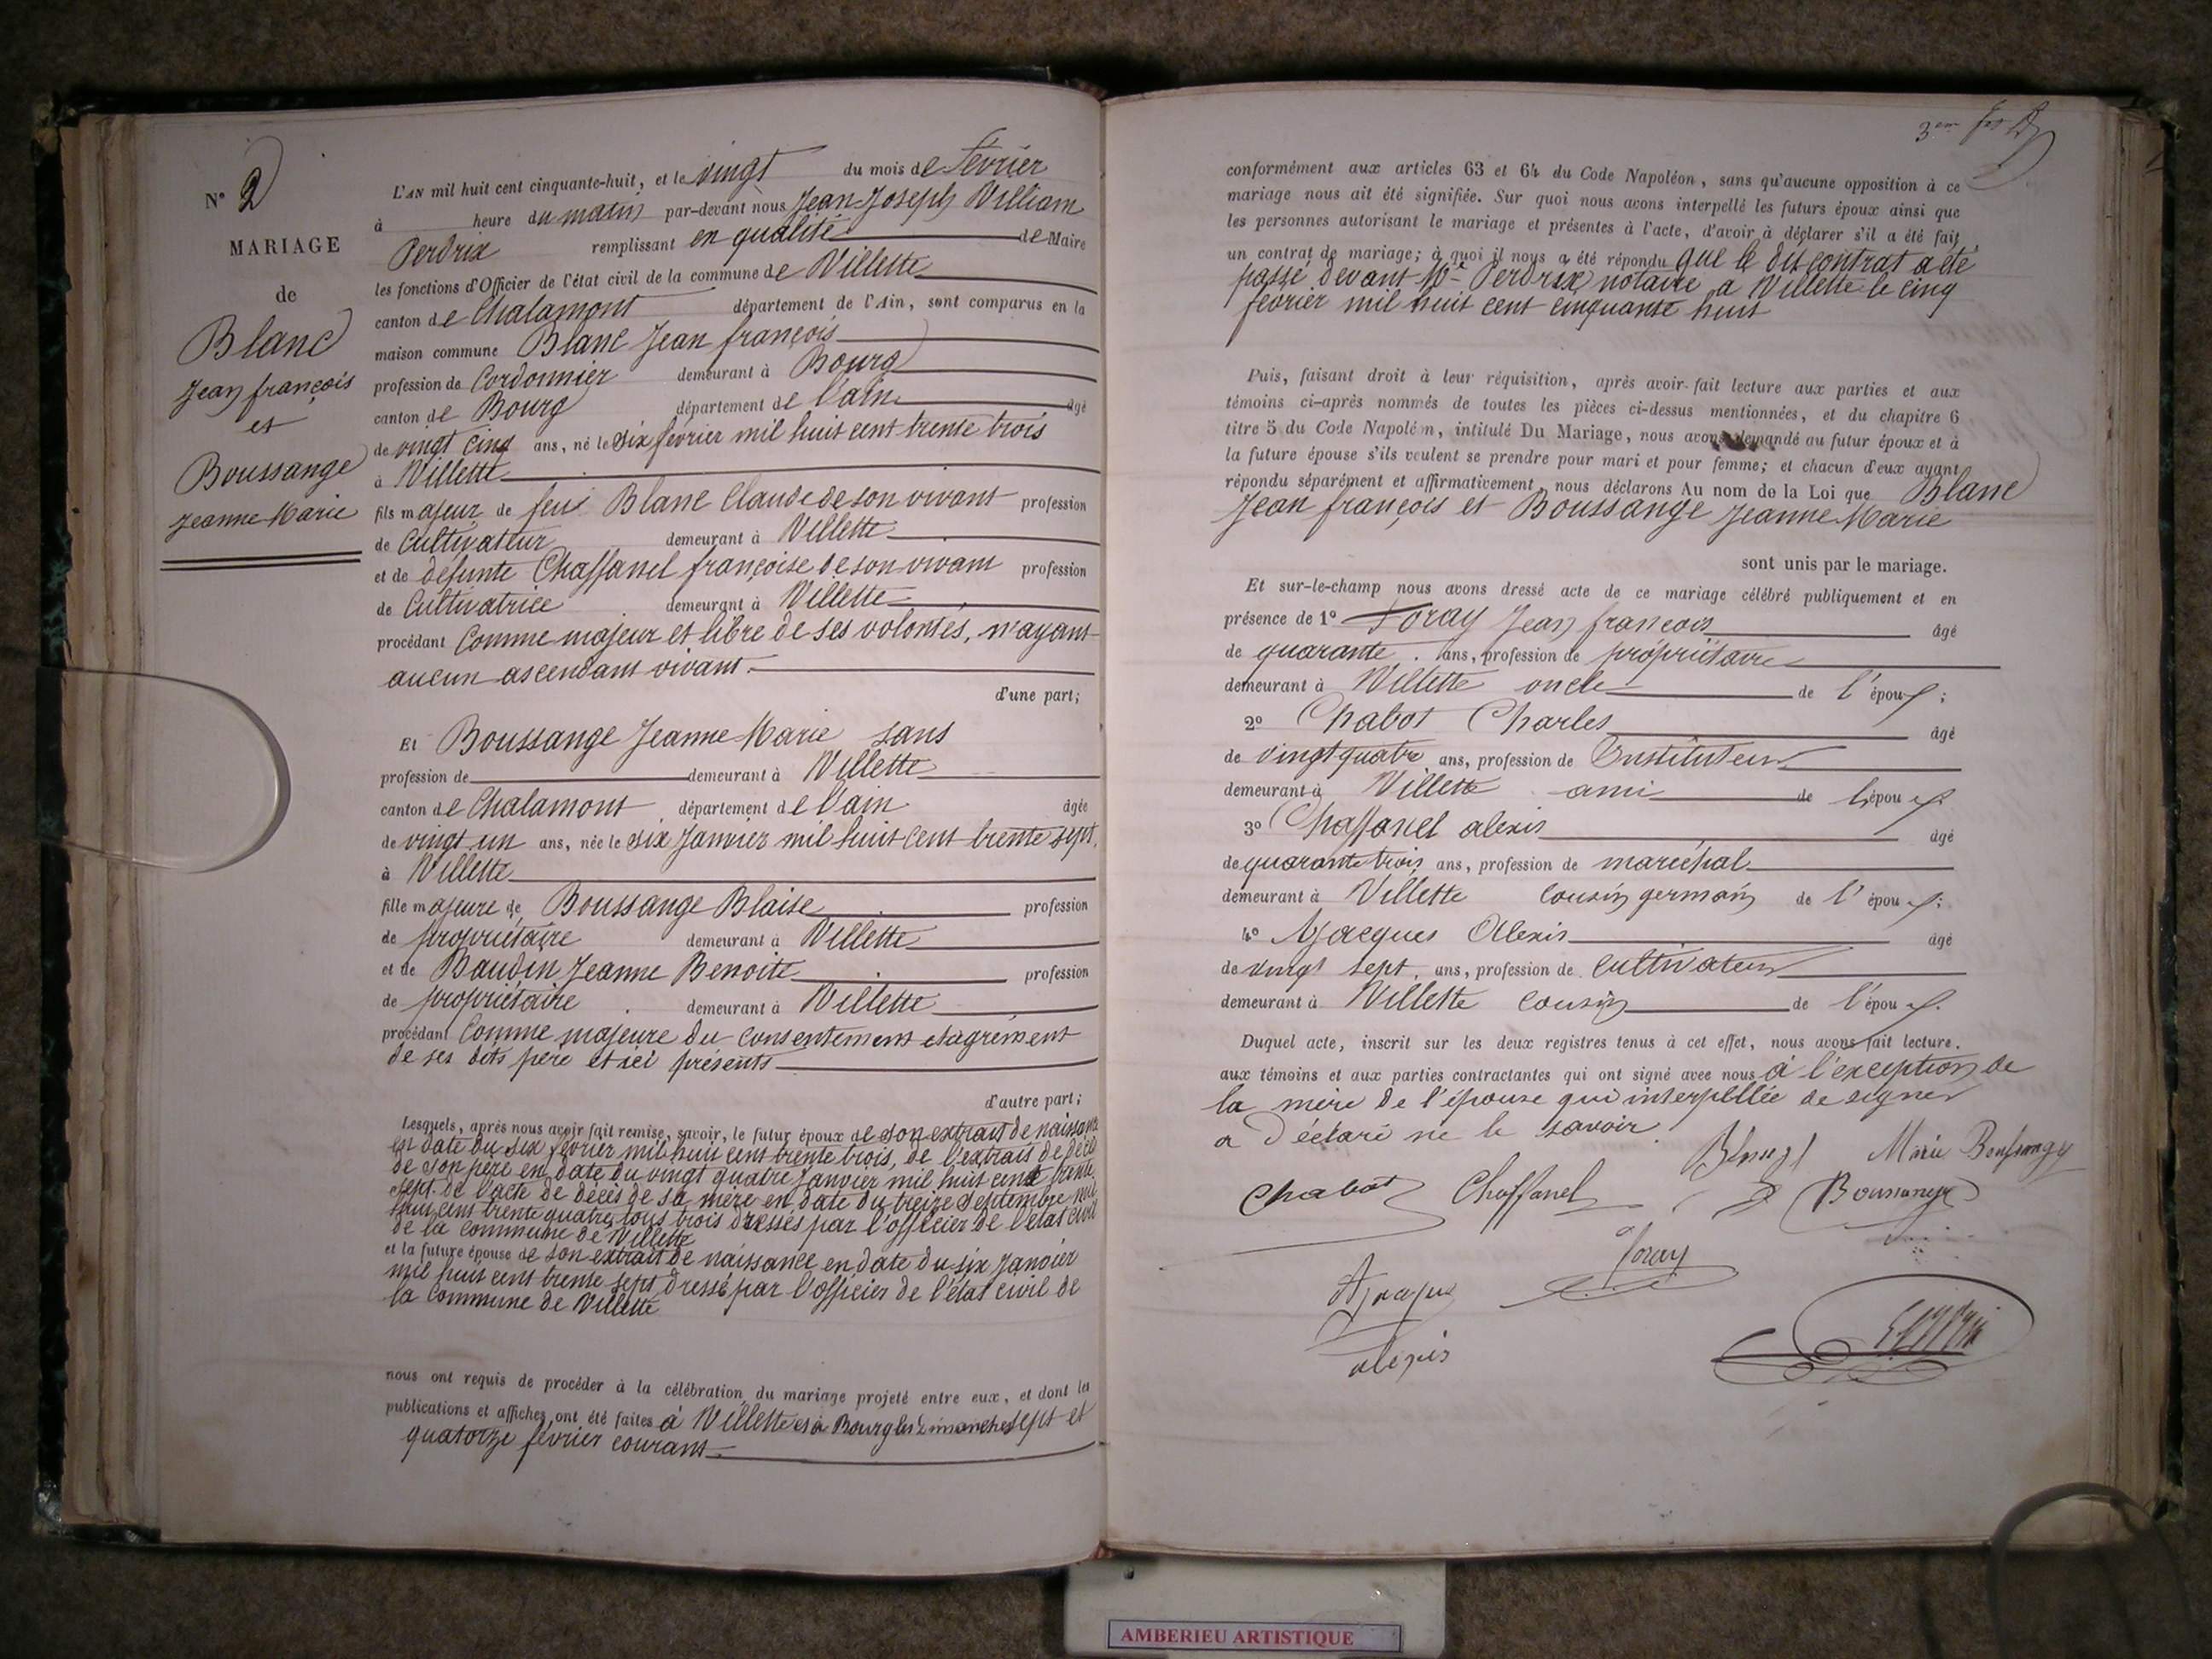 N° 2
MARIAGE
de
Blanc
Jean françois
et
Boussange
Jeanne Marie
L'AN mil huit cent cinquante-huit, et le vingt du mois de février
à heure du matin par-devant nous Jean Joseph William
Perdrix remplissant en qualité de Maire
les fonctions d'Officier de l'état civil de la commune de Villette
canton de Chalamont département de l'Ain, sont comparus en la
maison commune Blanc Jean françois
profession de Cordonnier demeurant à Bourg
canton de Bourg département de l'ain âgé
de vingt cinq ans, né le six février mil huit cent trente trois
à Villette
fils majeur de feu Blanc Claude de son vivant profession
de Cultivateur demeurant à Villette
et de défunte Chaffanel françoise de son vivant profession
de Cultivatrice demeurant à Villette
procédant Comme majeur et libre de ses volontés, n'ayant
aucun ascendant vivant.
d'une part;
Et Boussange Jeanne Marie sans
profession de demeurant à Villette
canton de Chalamont département de l'ain âgée
de vingt un ans, née le six Janvier mil huit cent trente sept
à Villette
fille majeure de Boussange Blaise profession
de propriétaire demeurant à Villette
et de Baudin Jeanne Benoite profession
de propriétaire demeurant à Villette
procédant Comme majeure du consentement et agrément
de ses dits père et ici présents
d'autre part;
Lesquels, après nous avoir fait remise, savoir, le futur époux de son extrait de naissance
en date du six février mil huit cent trente trois, de l'extrait de décès
de son père en date du vingt quatre Janvier mil huit cent trente
sept. de l'acte de décès de sa mère en date du treize Septembre mil
huit cent trente quatre, tous trois dressés par l'officier de l'état civil
de la commune de Villette
et la future épouse de son extrait de naissance en date du six Janvier
mil huit cent trente sept dressé par l'officier de l'état civil de
la Commune de Villette
nous ont requis de procéder à la célébration du mariage projeté entre eux, et dont les
publications et affiches ont été faites à Villette et à Bourg les dimanches sept et
quatorze février courant
3em
conformément aux articles 63 et 64 du Code Napoléon, sans qu'aucune opposition à ce
mariage nous ait été signifiée. Sur quoi nous avons interpellé les futurs époux ainsi que
les personnes autorisant le mariage et présentes à l'acte, d'avoir à déclarer s'il a été fait
un contrat de mariage; à quoi il nous a été répondu que le dit contrat a été
passé devant Me Perdrix notaire a Villette le cinq
février mil huit cent cinquante huit
Puis, faisant droit à leur réquisition, après avoir fait lecture aux parties et aux
témoins ci-après nommés de toutes les pièces ci-dessus mentionnées, et du chapitre 6
titre 5 du Code Napoléon, intitulé Du Mariage, nous avons demandé au futur époux et à
la future épouse s'ils veulent se prendre pour mari et pour femme; et chacun d'eux ayant
répondu séparément et affirmativement, nous déclarons Au nom de la Loi que Blanc
Jean françois et Boussange Jeanne Marie
sont unis par le mariage.
Et sur-le-champ nous avons dressé acte de ce mariage célébré publiquement et en
présence de 1° Foray Jean francois âgé
de quarante ans, profession de propriétaire
demeurant à Villette oncle de l'époux;
2° Chabot Charles âgé
de vingt quatre ans, profession de Instituteur
demeurant à Villette ami de l'époux.
3° Chaffanel alexis âgé
de quarante trois ans, profession de maréchal
demeurant à Villette cousin germain de l'époux;
4° Ajacques Alexis âgé
de vingt sept ans, profession de cultivateur
demeurant à Villette cousin de l'époux.
Duquel acte, inscrit sur les deux registres tenus à cet effet, nous avons fait lecture.
aux témoins et aux parties contractantes qui ont signé avec nous à l'exception de
la mère de l'épouse qui interpellée de signer
a déclaré ne le savoir.
Marie Boussange
Chabot Chaffanel Boussange
foray
Ajaques
alexis
AMBERIEU ARTISTIQUE